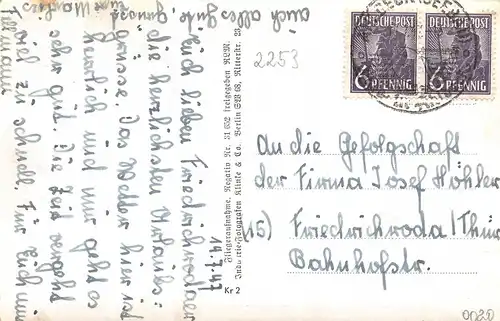 14.7.47
Euch lieben Friedrichrodaer
die herzlichsten Urlaubs=
grüsse. Das Wetter hier ist
herrlich und mir geht es
sehr gut. Die Zeit vergeht
viel zu schnell. Für Euch nun
auch alles gute,
Fliegeraufnahme. Negativ Nr. 31 652 freigegeben RLM.
Industrie-Fotografen Klinke & Co. Berlin SW 68, Ritterstr. 23
Kr 2
2253
DEUTSCHE POST
6 PFENNIG
DEUTSCHE POST
6 PFENNIG
An die Gefolgschaft
der Firma Josef Höhler
15) Friedrichroda/Thür
Bahnhofstr.